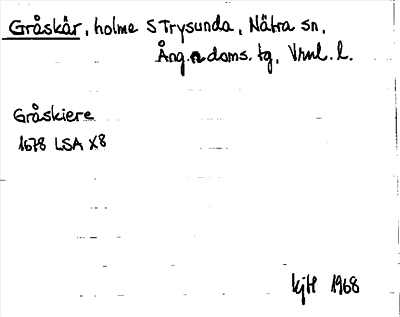 Gråskär, holme S Trysunda, Nätra sn,
Ång.n doms. tg, Vrnl. l.
Gråskiere
1678 LSA X8
kjH 1968